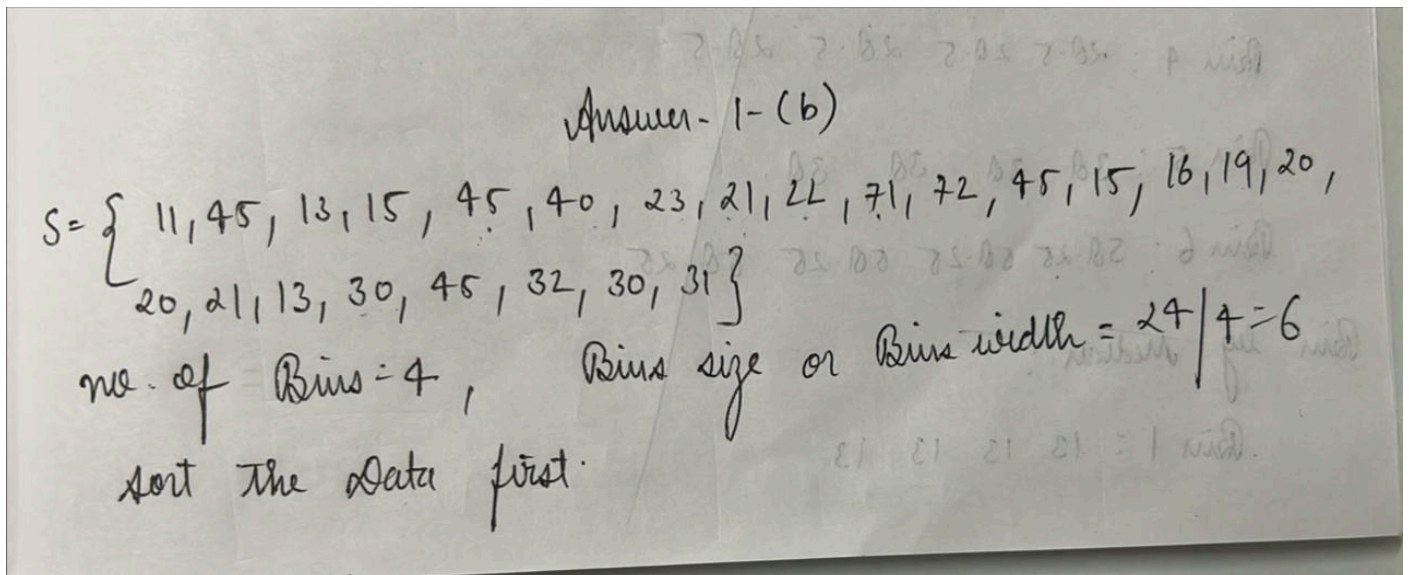 Answer- 1-(b)
S= { 11, 45, 13, 15, 45, 40, 23, 21, 22, 71, 72, 45, 15, 16, 19, 20,
20, 21, 13, 30, 45, 32, 30, 31 }
no. of Bins = 4, Bins size or Bins width = 24/4=6
sort The Data first.